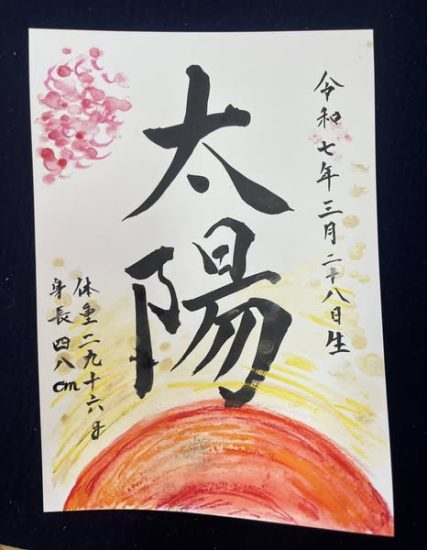 令和七年三月二十八日生
太陽
体重二九十六g
身長四八cm